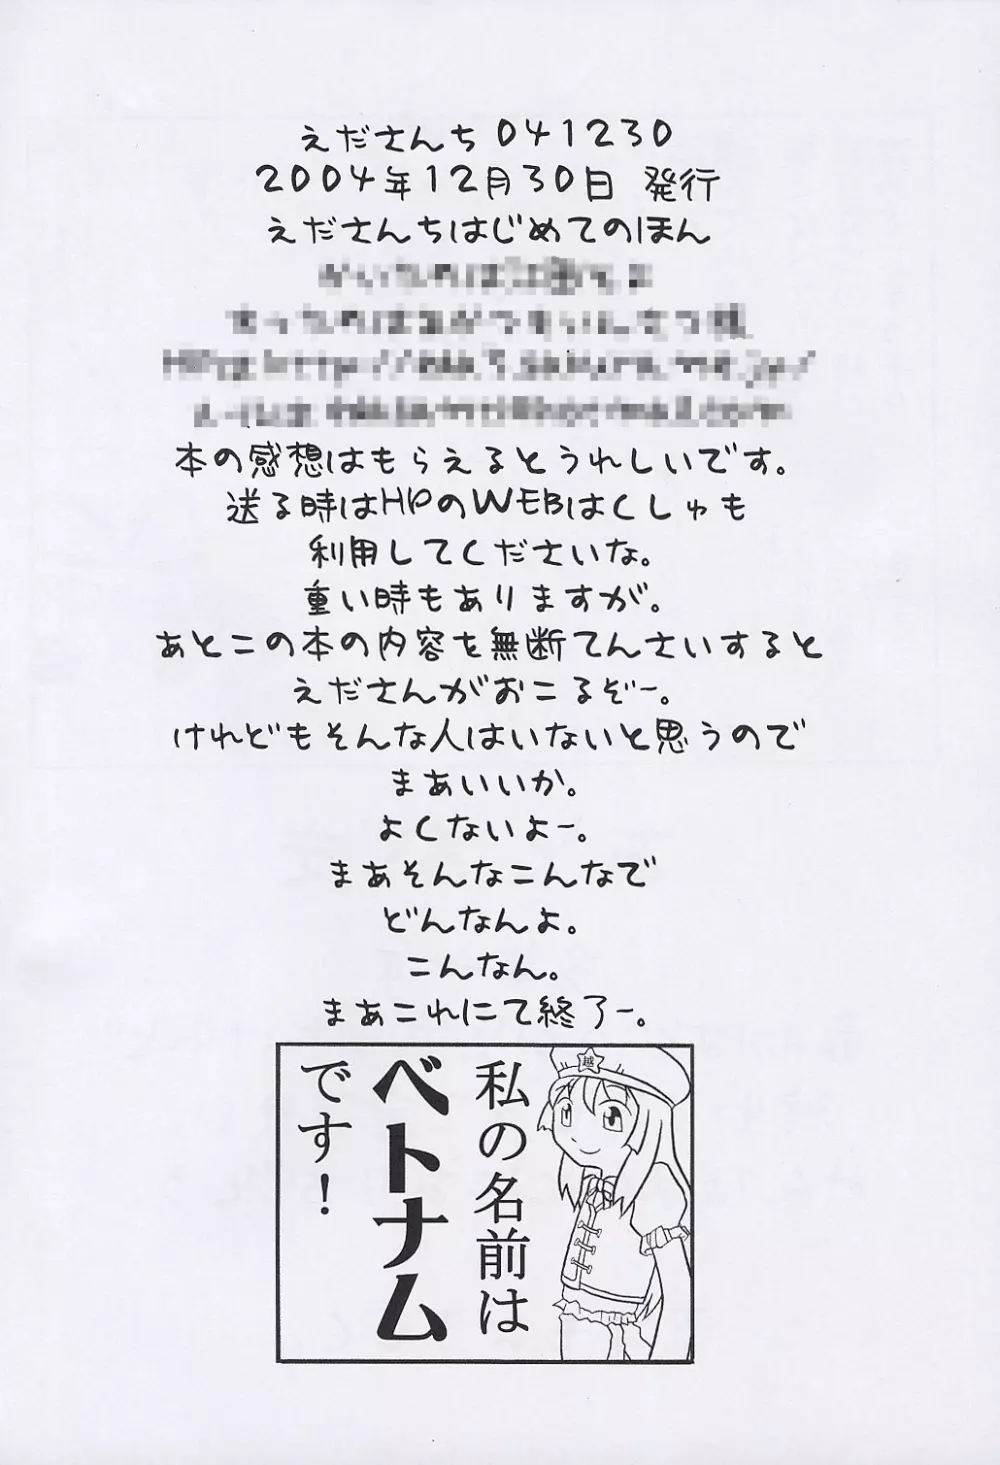 えださんち 041230
2004年12月30日 発行
えださんちはじめてのほん
本の感想はもらえるとうれしいです。
送る時はHPのWEBはくしゅも
利用してくださいな。
重い時もありますが。
あとこの本の内容を無断てんさいすると
えださんがおこるぞー。
けれどもそんな人はいないと思うので
まあいいか。
よくないよー。
まあそんなこんなで
どんなんよ。
こんなん。
まあこれにて終了ー。
越
私の名前は
ベトナム
です！